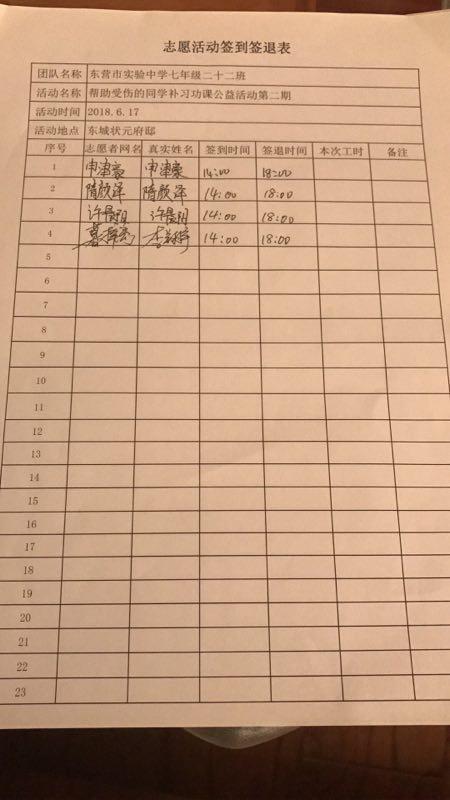 志愿活动签到签退表
团队名称 东营市实验中学七年级二十二班
活动名称 帮助受伤的同学补习功课公益活动第二期
活动时间 2018.6.17
活动地点 东城状元府邸
序号 志愿者网名 真实姓名 签到时间 签退时间 本次工时 备注
1 申津豪 申津豪 14:00 18:00
2 隋颜泽 隋颜泽 14:00 18:00
3 许晨阳 许晨阳 14:00 18:00
4 14:00 18:00
5
6
7
8
9
10
11
12
13
14
15
16
17
18
19
20
21
22
23